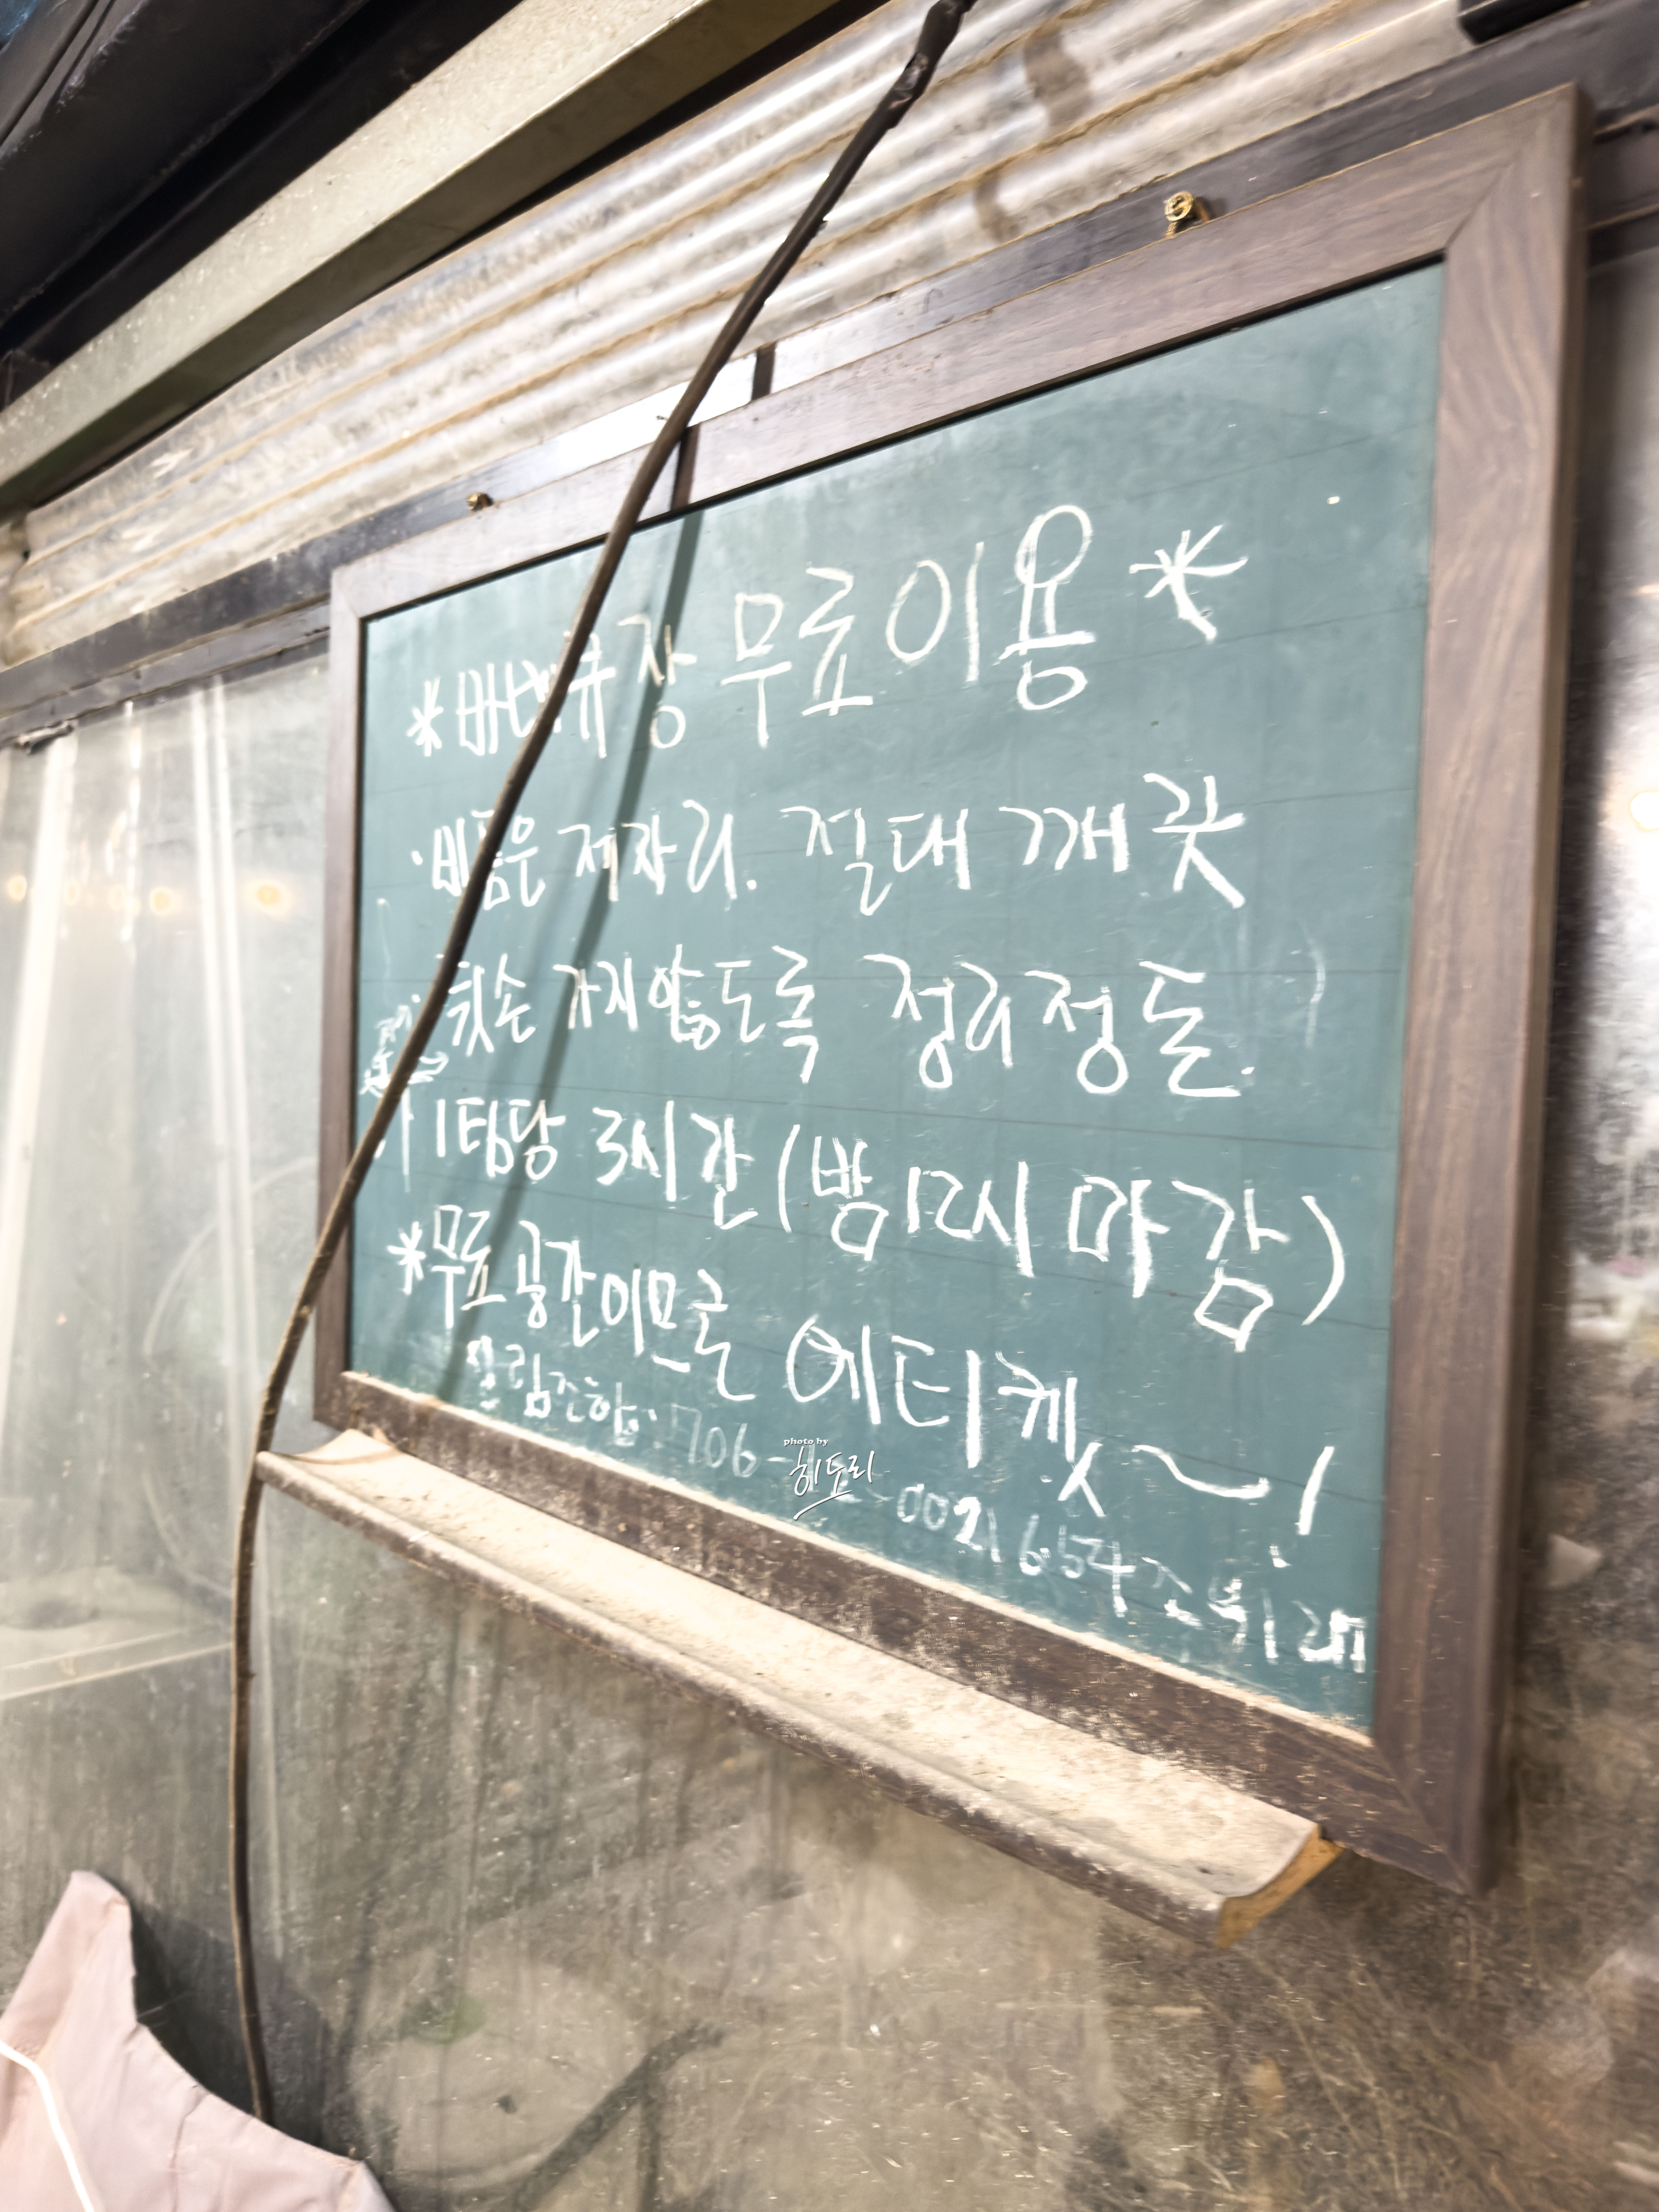 *바베큐장 무료이용*
·비품은 제자리. 절대 깨끗
뒷손 가지않도록 정리정돈.
1팀당 3시간 (밤12시 마감)
*무료공간이므로 에티켓~!
산림조합 706- -0021 654 조
photo by
히토리